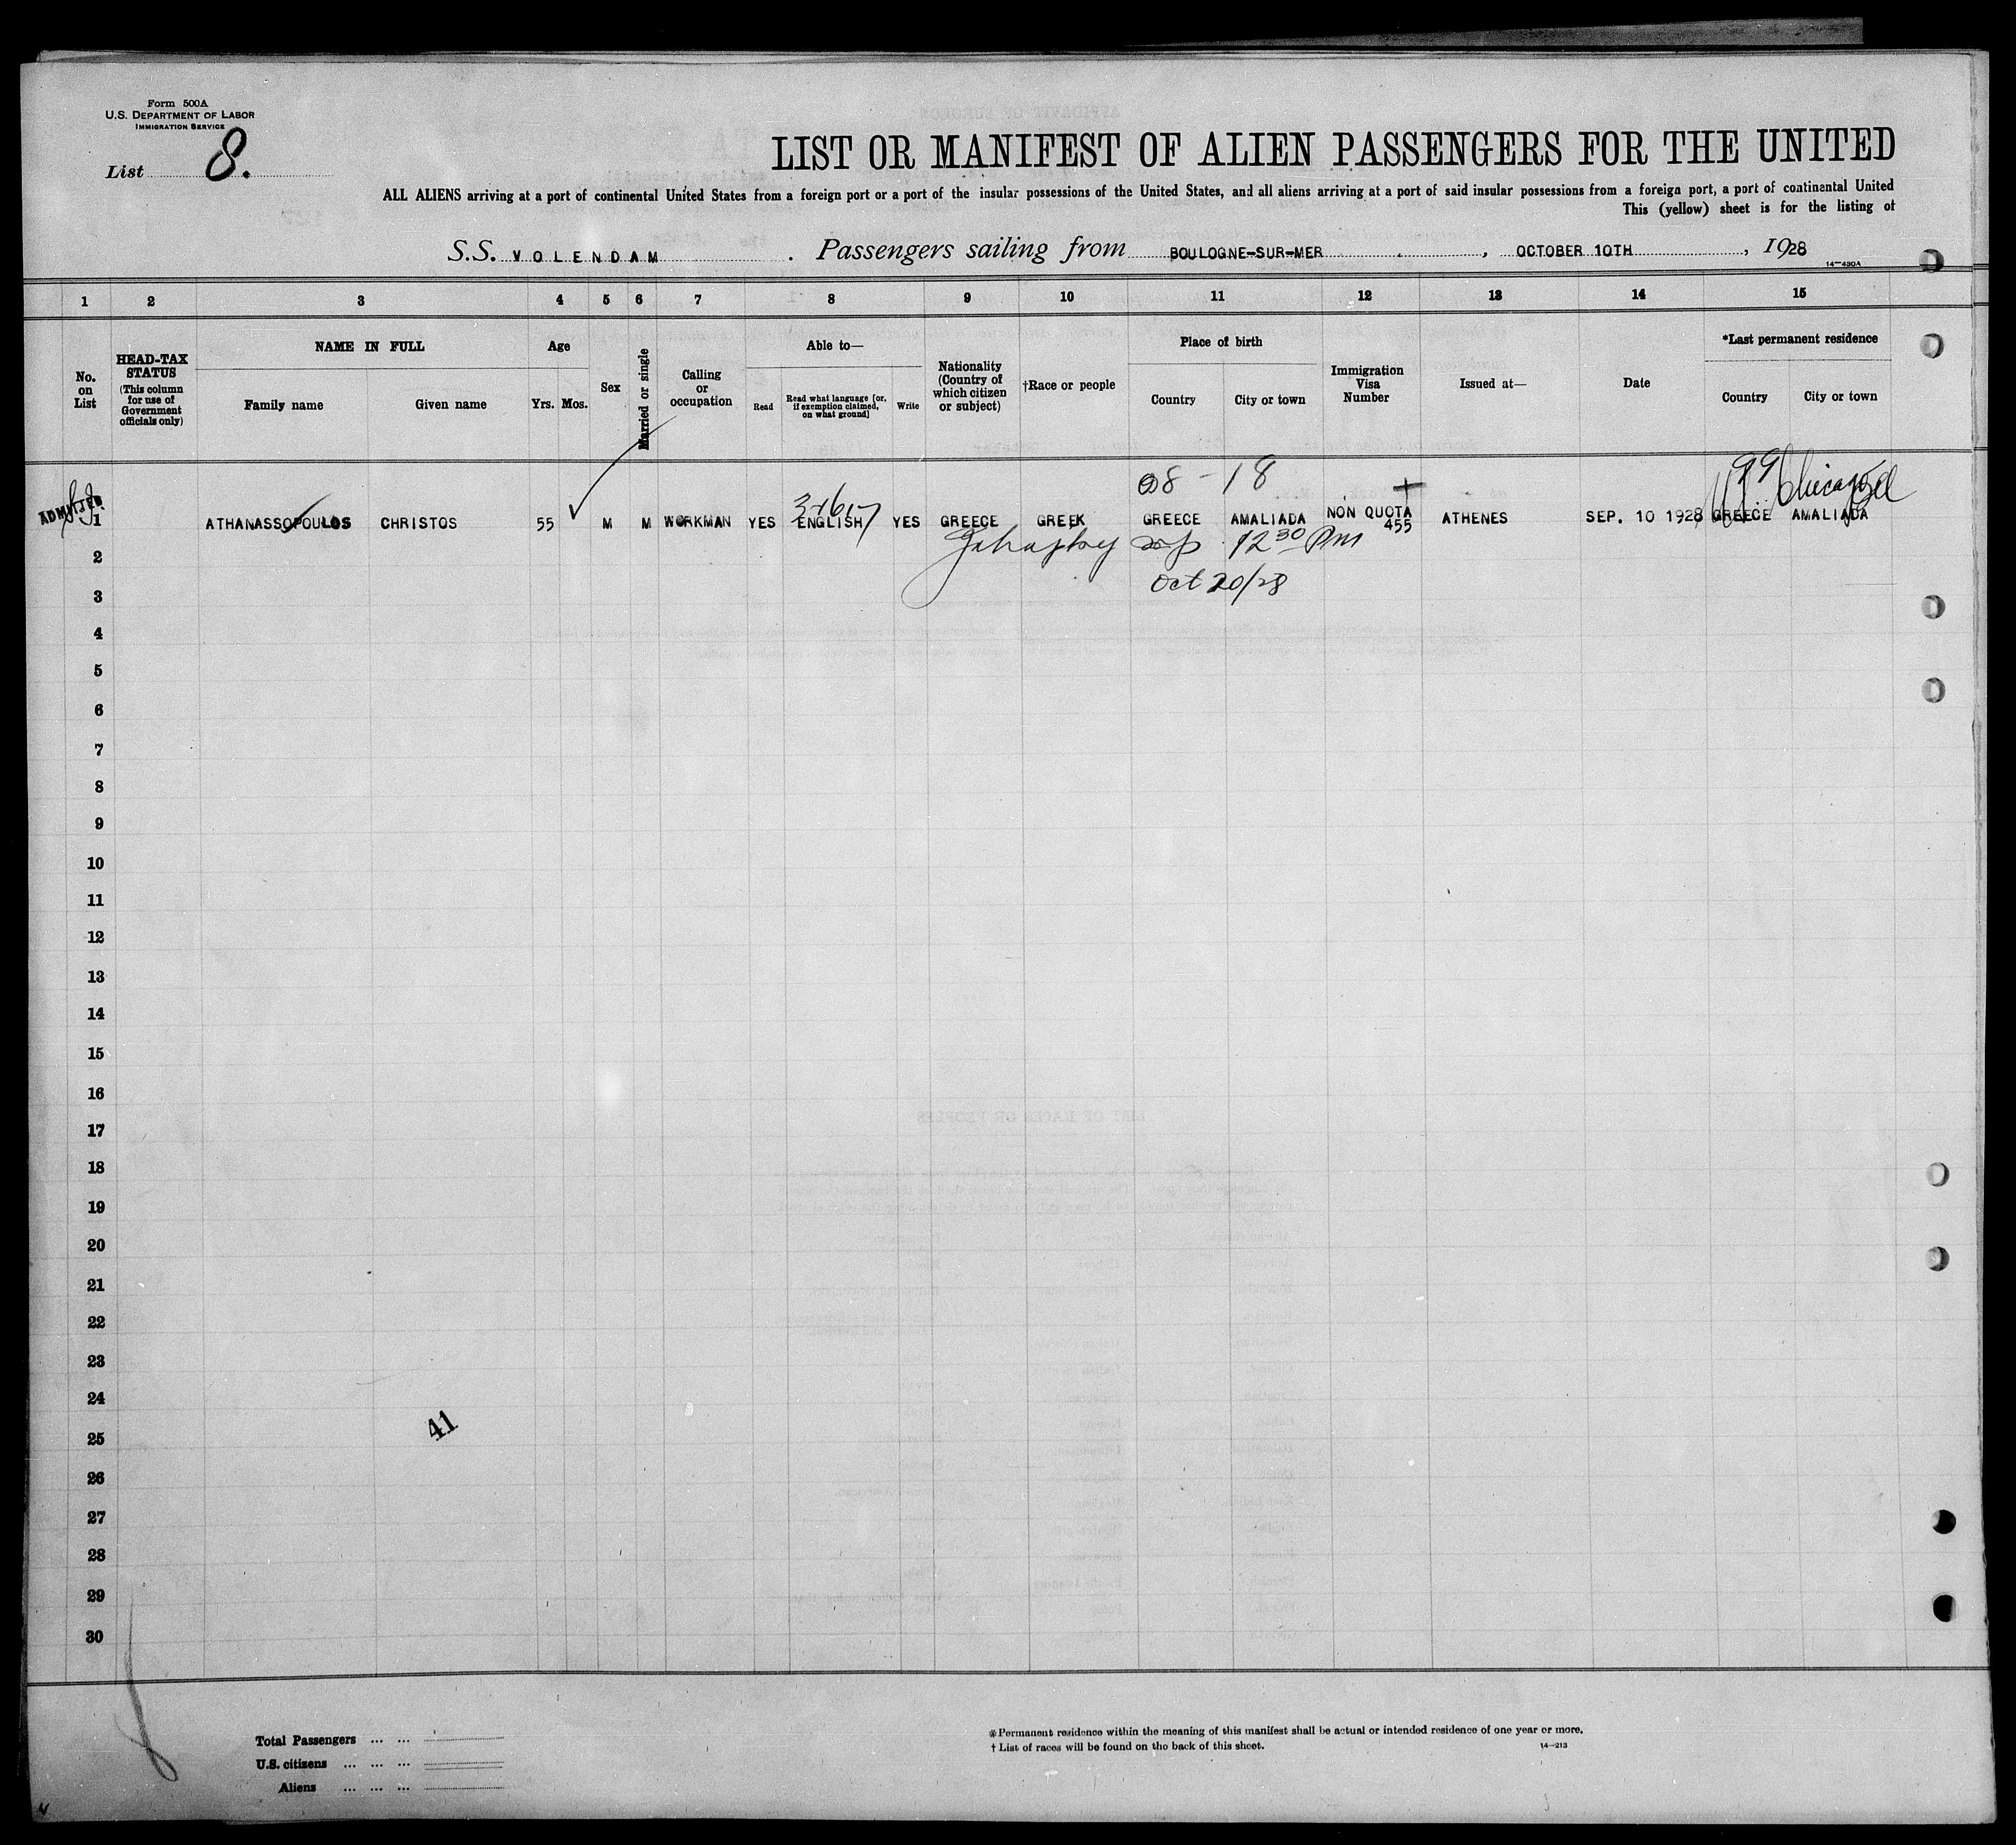 Form 500A
U.S. DEPARTMENT OF LABOR
IMMIGRATION SERVICE
List 8.
LIST OR MANIFEST OF ALIEN PASSENGERS FOR THE UNITED
ALL ALIENS arriving at a port of continental United States from a foreign port or a port of the insular possessions of the United States, and all aliens arriving at a port of said insular possessions from a foreign port, a port of continental United
This (yellow) sheet is for the listing of
S.S. VOLENDAM . Passengers sailing from BOULOGNE-SUR-MER , OCTOBER 10TH , 1928
14-430A
1 2 3 4 5 6 7 8 9 10 11 12 13 14 15
No. on List
HEAD-TAX STATUS
(This column for use of Government officials only)
NAME IN FULL
Family name Given name
Age
Yrs. Mos.
Sex
Married or single
Calling or occupation
Able to—
Read
Read what language [or, if exemption claimed, on what ground]
Write
Nationality (Country of which citizen or subject)
†Race or people
Place of birth
Country City or town
Immigration Visa Number
Issued at—
Date
*Last permanent residence
Country City or town
8 - 18
99 Chicago
ADMITTED
1 ATHANASSOPOULOS CHRISTOS 55 M M WORKMAN YES ENGLISH YES GREECE GREEK GREECE AMALIADA NON QUOTA 455 ATHENES SEP. 10 1928 GREECE AMALIADA
12 30 Pm
2
Oct 20/28
3
4
5
6
7
8
9
10
11
12
13
14
15
16
17
18
19
20
21
22
23
24
41
25
26
27
28
29
30
Total Passengers ... ...
U.S. citizens ... ... ...
Aliens ... ... ...
*Permanent residence within the meaning of this manifest shall be actual or intended residence of one year or more.
†List of races will be found on the back of this sheet.
14-213